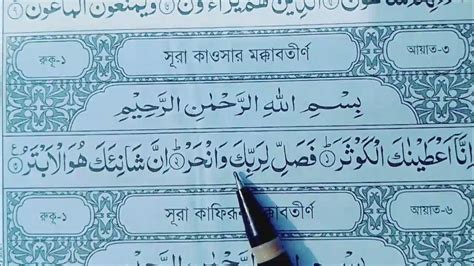 الَّذِيْنَ هُمْ يُرَآءُوْنَ ۙ وَيَمْنَعُوْنَ الْمَاعُوْنَ
রুকূ-১ সূরা কাওসার মক্কাবতীর্ণ আয়াত-৩
بِسْمِ اللّٰهِ الرَّحْمٰنِ الرَّحِيْمِ
اِنَّاۤ اَعْطَيْنٰكَ الْكَوْثَرَ ؕ فَصَلِّ لِرَبِّكَ وَانْحَرْ ؕ اِنَّ شَانِئَكَ هُوَ الْاَبْتَرُ
রুকূ-১ সূরা আয়াত-৬